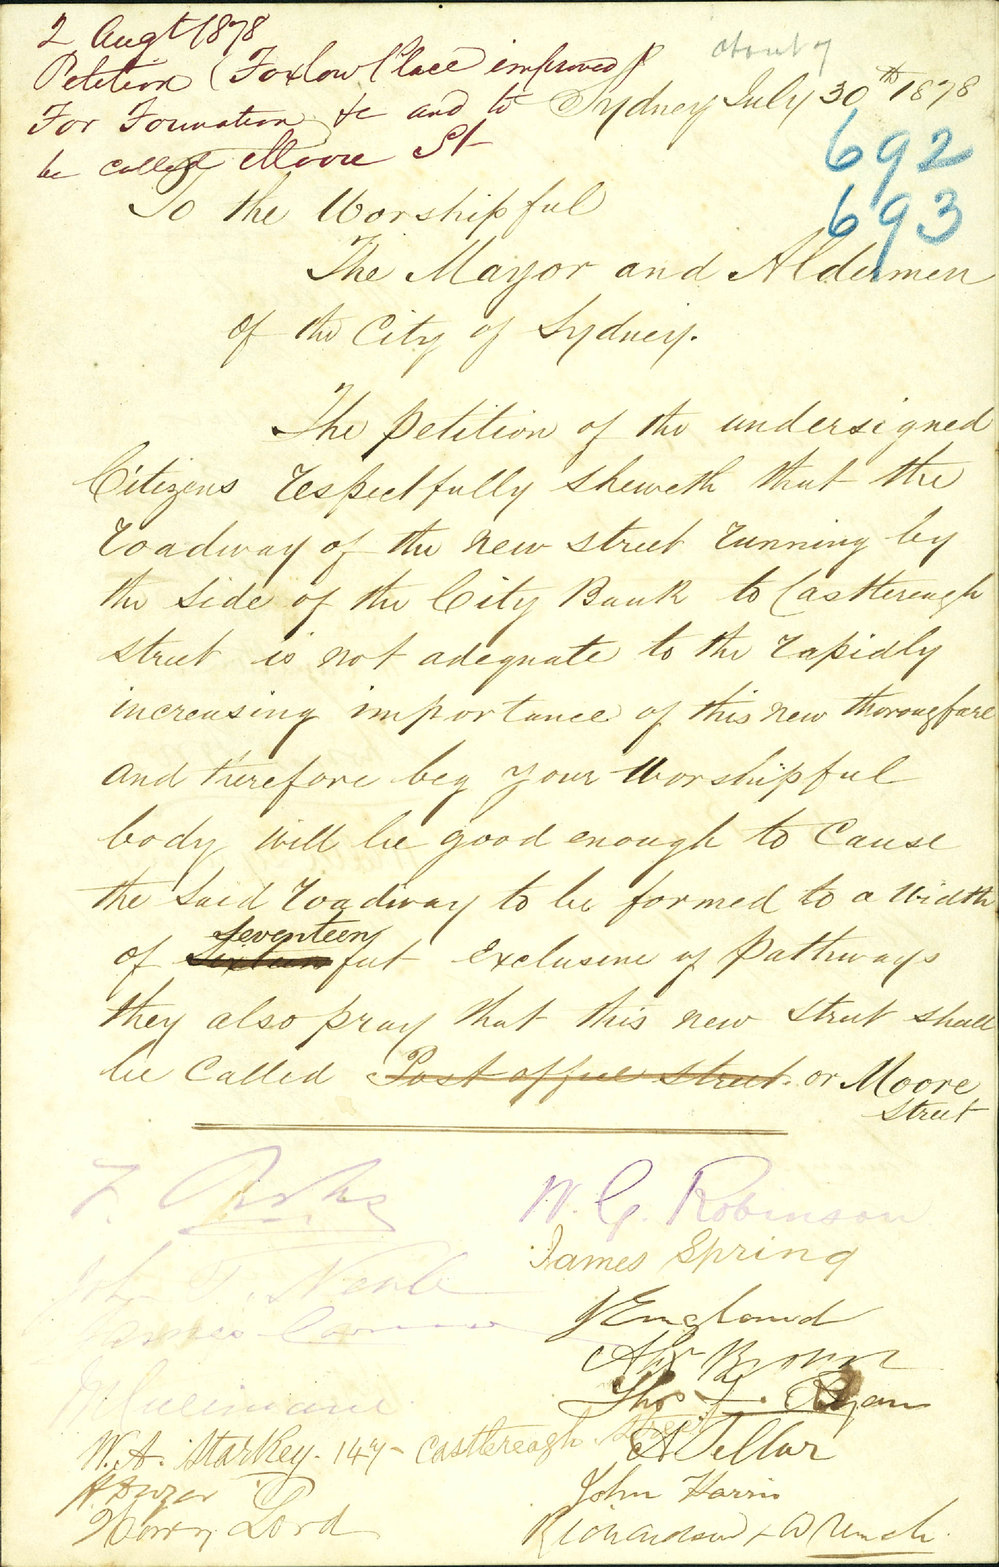 2 Augt 1878
Petition (Foxlow Place improved)
For Formation &c and to
be called Moore St
about 7
Sydney July 30th 1878
692
693
To the Worshipful
The Mayor and Aldermen
of the City of Sydney.
The petition of the undersigned
Citizens respectfully sheweth that the
roadway of the new street running by
the side of the City Bank to Castlereagh
street is not adequate to the rapidly
increasing importance of this new thorougfare
and therefore beg your Worshipful
body will be good enough to cause
the said roadway to be formed to a width
of Sixteen seventeen feet exclusive of pathways
they also pray that this new street shall
be called Post office street. or Moore
Street
W. G. Robinson
James Spring
John T. Neale
J England
James
Alex Brown
Thos J. Ryan
W. H. Starkey. 147 Castlereagh Street
John Harris
Harry Lord
Richardson & Wrench.